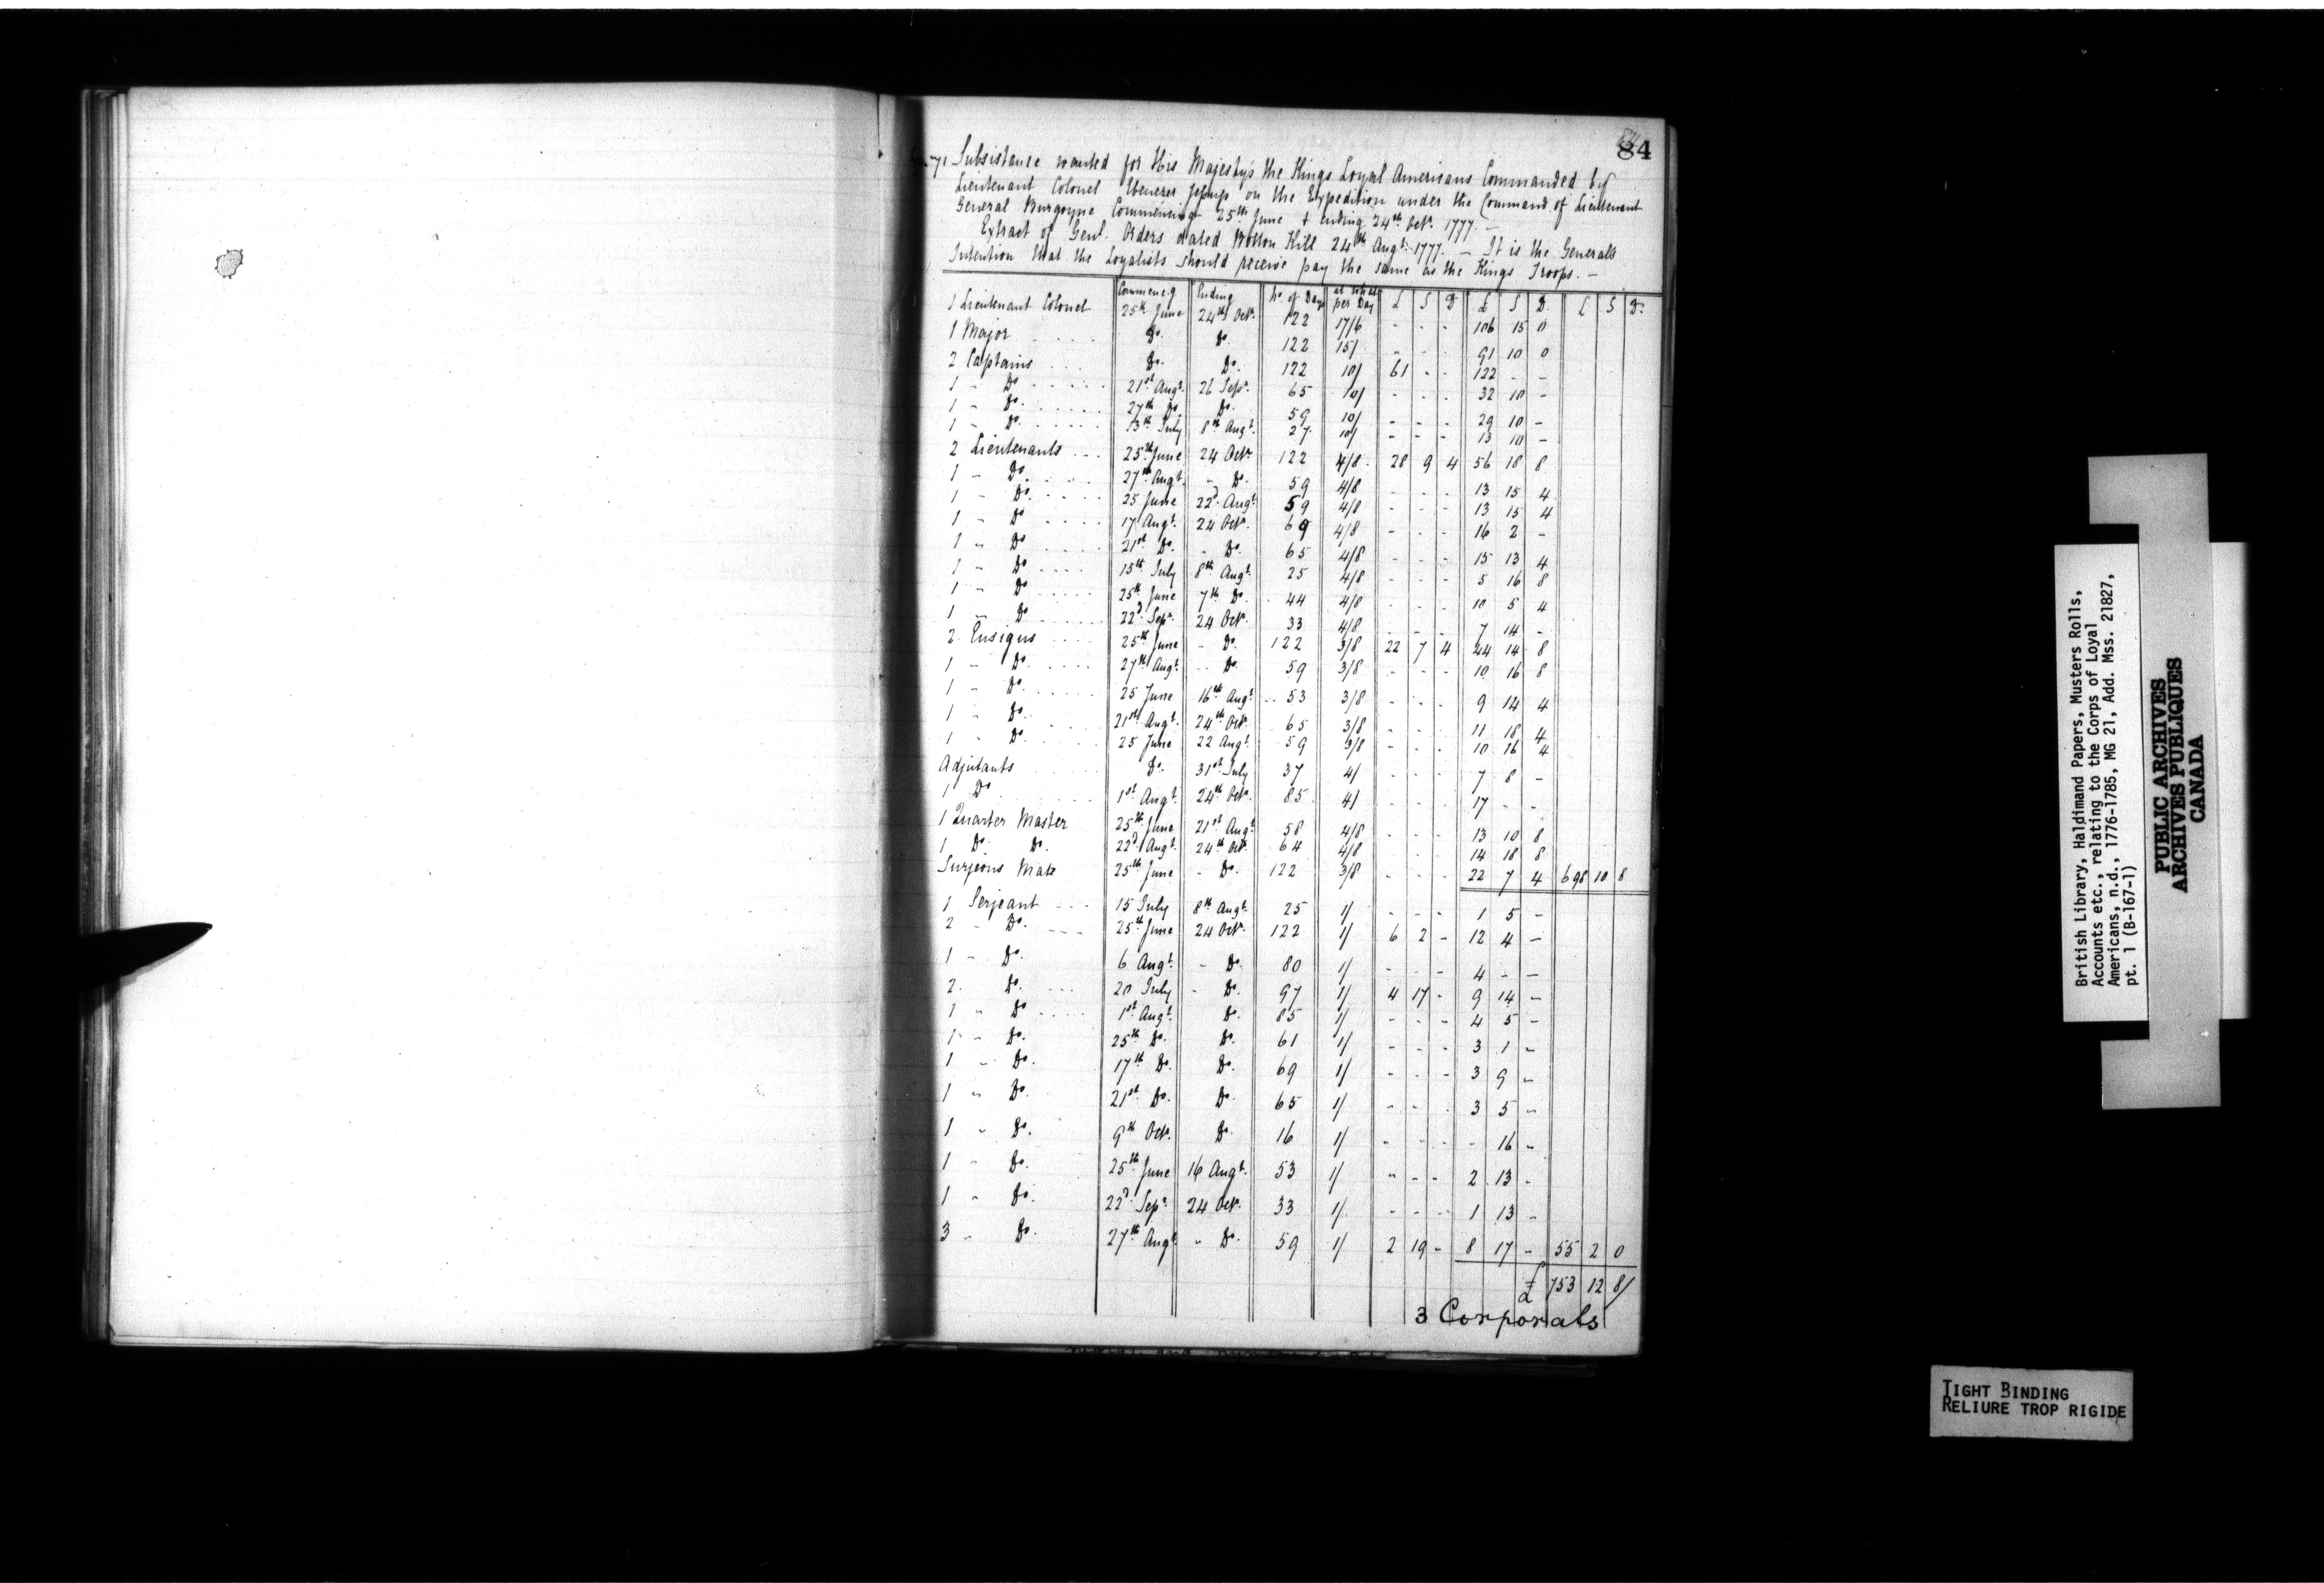 84
71 Subsistance wanted for His Majesty's the Kings Loyal Americans Commanded by
Lieutenant Colonel Ebenezer Jessup on the Expedition under the Command of Lieutenant
General Burgoyne Commencing 25th June & ending 24th Octr. 1777. —
Extract of Genl. Orders dated Batton Kill 24th Augt. 1777. — It is the Generals
Intention that the Loyalists should receive pay the same as the Kings Troops. —
Commenc.g Ending No. of Days at what per Day £ S D £ S D £ S D.
1 Lieutenant Colonel 25th June 24th Octr. 122 17/6 - - - 106 15 0
1 Major Do. Do. 122 15/ - - - 91 10 0
2 Captains Do. Do. 122 10/ 61 - - 122 - -
1 - Do 21st Augt. 26 Sepr. 65 10/ - - - 32 10 -
1 - Do. 27th Do. Do. 59 10/ - - - 29 10 -
1 - Do. 13th July 8th Augt. 27 10/ - - - 13 10 -
2 Lieutenants 25th June 24 Octr. 122 4/8 28 9 4 56 18 8
1 - Do. 27th Augt. - Do. 59 4/8 - - - 13 15 4
1 - Do. 25 June 22d. Augt. 59 4/8 - - - 13 15 4
1 - Do 17 Augt. 24 Octr. 69 4/8 - - - 16 2 -
1 - Do 21st Do. - Do. 65 4/8 - - - 15 13 4
1 - Do 15th July 8th Augt. 25 4/8 - - - 5 16 8
1 - Do 25th June 7th Do. 44 4/8 - - - 10 5 4
1 - Do 22d Sepr. 24 Octr. 33 4/8 - - - 7 14 -
2 Ensigns 25th June - Do. 122 3/8 22 7 4 44 14 8
1 - Do. 27th Augt. - Do. 59 3/8 - - - 10 16 8
1 - Do. 25 June 16th Augt. 53 3/8 - - - 9 14 4
1 - Do. 21st Augt. 24th Octr. 65 3/8 - - - 11 18 4
1 - Do. 25 June 22 Augt. 59 3/8 - - - 10 16 4
Adjutants Do. 31st July 37 4/ - - - 7 8 -
1 Do 1st Augt. 24th Octr. 85 4/ 17 - -
1 Quarter Master 25th June 21st Augt. 58 4/8 - - - 13 10 8
1 Do. Do. 22d. Augt. 24th Octr. 64 4/8 - - - 14 18 8
Surgeons Mate 25th June - Do. 122 3/8 - - - 22 7 4 698 10 8
1 Serjeant 15 July 8th Augt. 25 1/ - - - 1 5 -
2 - Do. 25th June 24 Octr. 122 1/ 6 2 - 12 4 -
1 - Do. 6 Augt. - Do. 80 1/ - - - 4 - -
2. Do. 20 July - Do. 97 1/ 4 17 - 9 14 -
1 - Do 1st Augt. Do. 85 1/ - - - 4 5 -
1 - Do. 25th Do. Do. 61 1/ - - - 3 1 -
1 - Do. 17th Do. Do. 69 1/ - - - 3 9 -
1 - Do. 21st Do. Do. 65 1/ - - - 3 5 -
1 - Do. 9th Octr. Do. 16 1/ - - - - 16 -
1 - Do. 25th June 16 Augt. 53 1/ - - - 2 13 -
1 - Do. 22d. Sepr. 24 Octr. 33 1/ - - - 1 13 -
3 - Do. 27th Augt. - Do. 59 1/ 2 19 - 8 17 - 55 2 0
£ 753 12 8/
3 Corporals
British Library, Haldimand Papers, Musters Rolls,
Accounts etc., relating to the Corps of Loyal
Americans, n.d., 1776-1785, MG 21, Add. Mss. 21827,
pt. 1 (B-167-1)
PUBLIC ARCHIVES
ARCHIVES PUBLIQUES
CANADA
TIGHT BINDING
RELIURE TROP RIGIDE